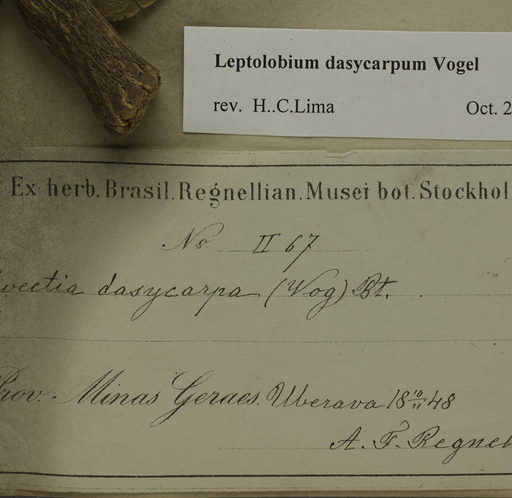 Leptolobium dasycarpum Vogel
rev. H..C.Lima Oct. 2
Ex herb. Brasil. Regnellian. Musei bot. Stockhol
No II 67
weetia dasycarpa (Vog) Bt.
Prov. Minas Geraes. Uberava 18 10/11 48
A. F. Regnel